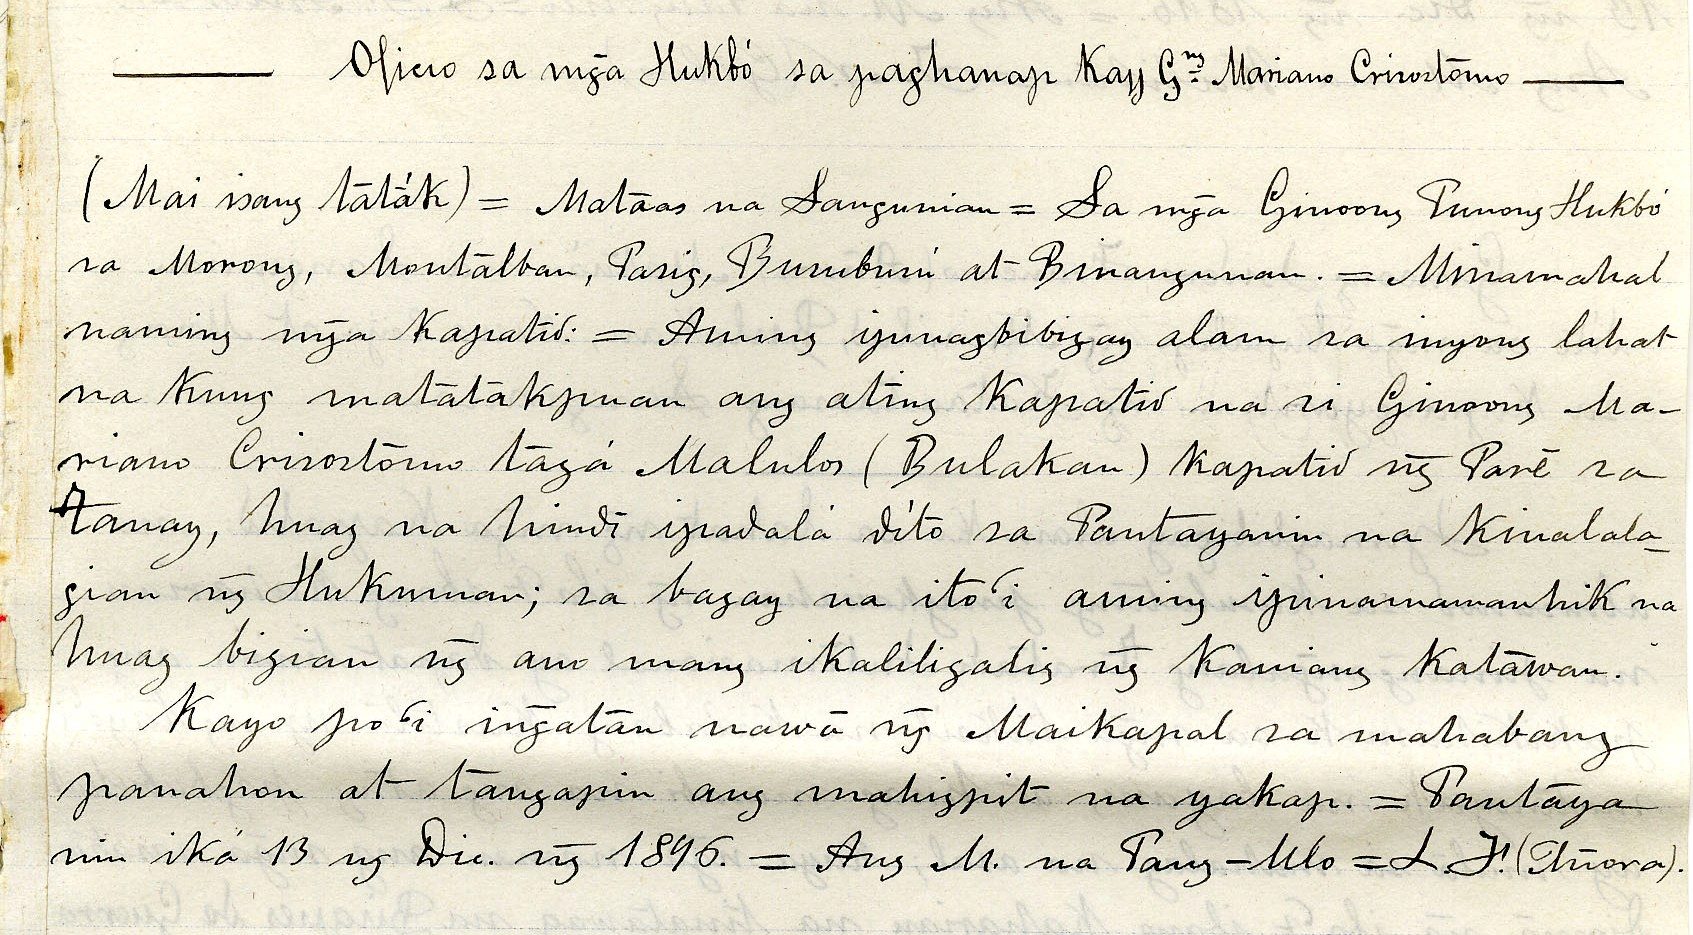 Oficio sa mḡa Hukbó sa paghanap Kay G.ng Mariano Crisostomo
(Mai isang tāták) = Mataas na Sangunian = Sa mḡa Ginoong Punong Hukbó
sa Morong, Montalban, Pasig, Busubusú at Binangunan. = Minamahal
naming mḡa Kapatid: = Aming ipinagbibigay alam sa inyong lahat
na Kung matatakpuan ang ating Kapatid na si Ginoong Ma-
riano Crisostomo tagá Malulos (Bulakan) Kapatid nḡ Pare sa
Tanay, huag na hindi ipadalá díto sa Pantayanin na Kinalala-
gian nḡ Hukuman; sa bagay na ito'i aming ipinamamanhik na
huag bigian nḡ ano mang ikaliligalig nḡ Kaniang Katawan.
Kayo po'i inḡatan nawa nḡ Maikapal sa mahabang
panahon at tangapin ang mahigpit na yakap. = Pantaya
nin iká 13 ng Dic. nḡ 1896. = Ang M. na Pang-Ulo = L. J.